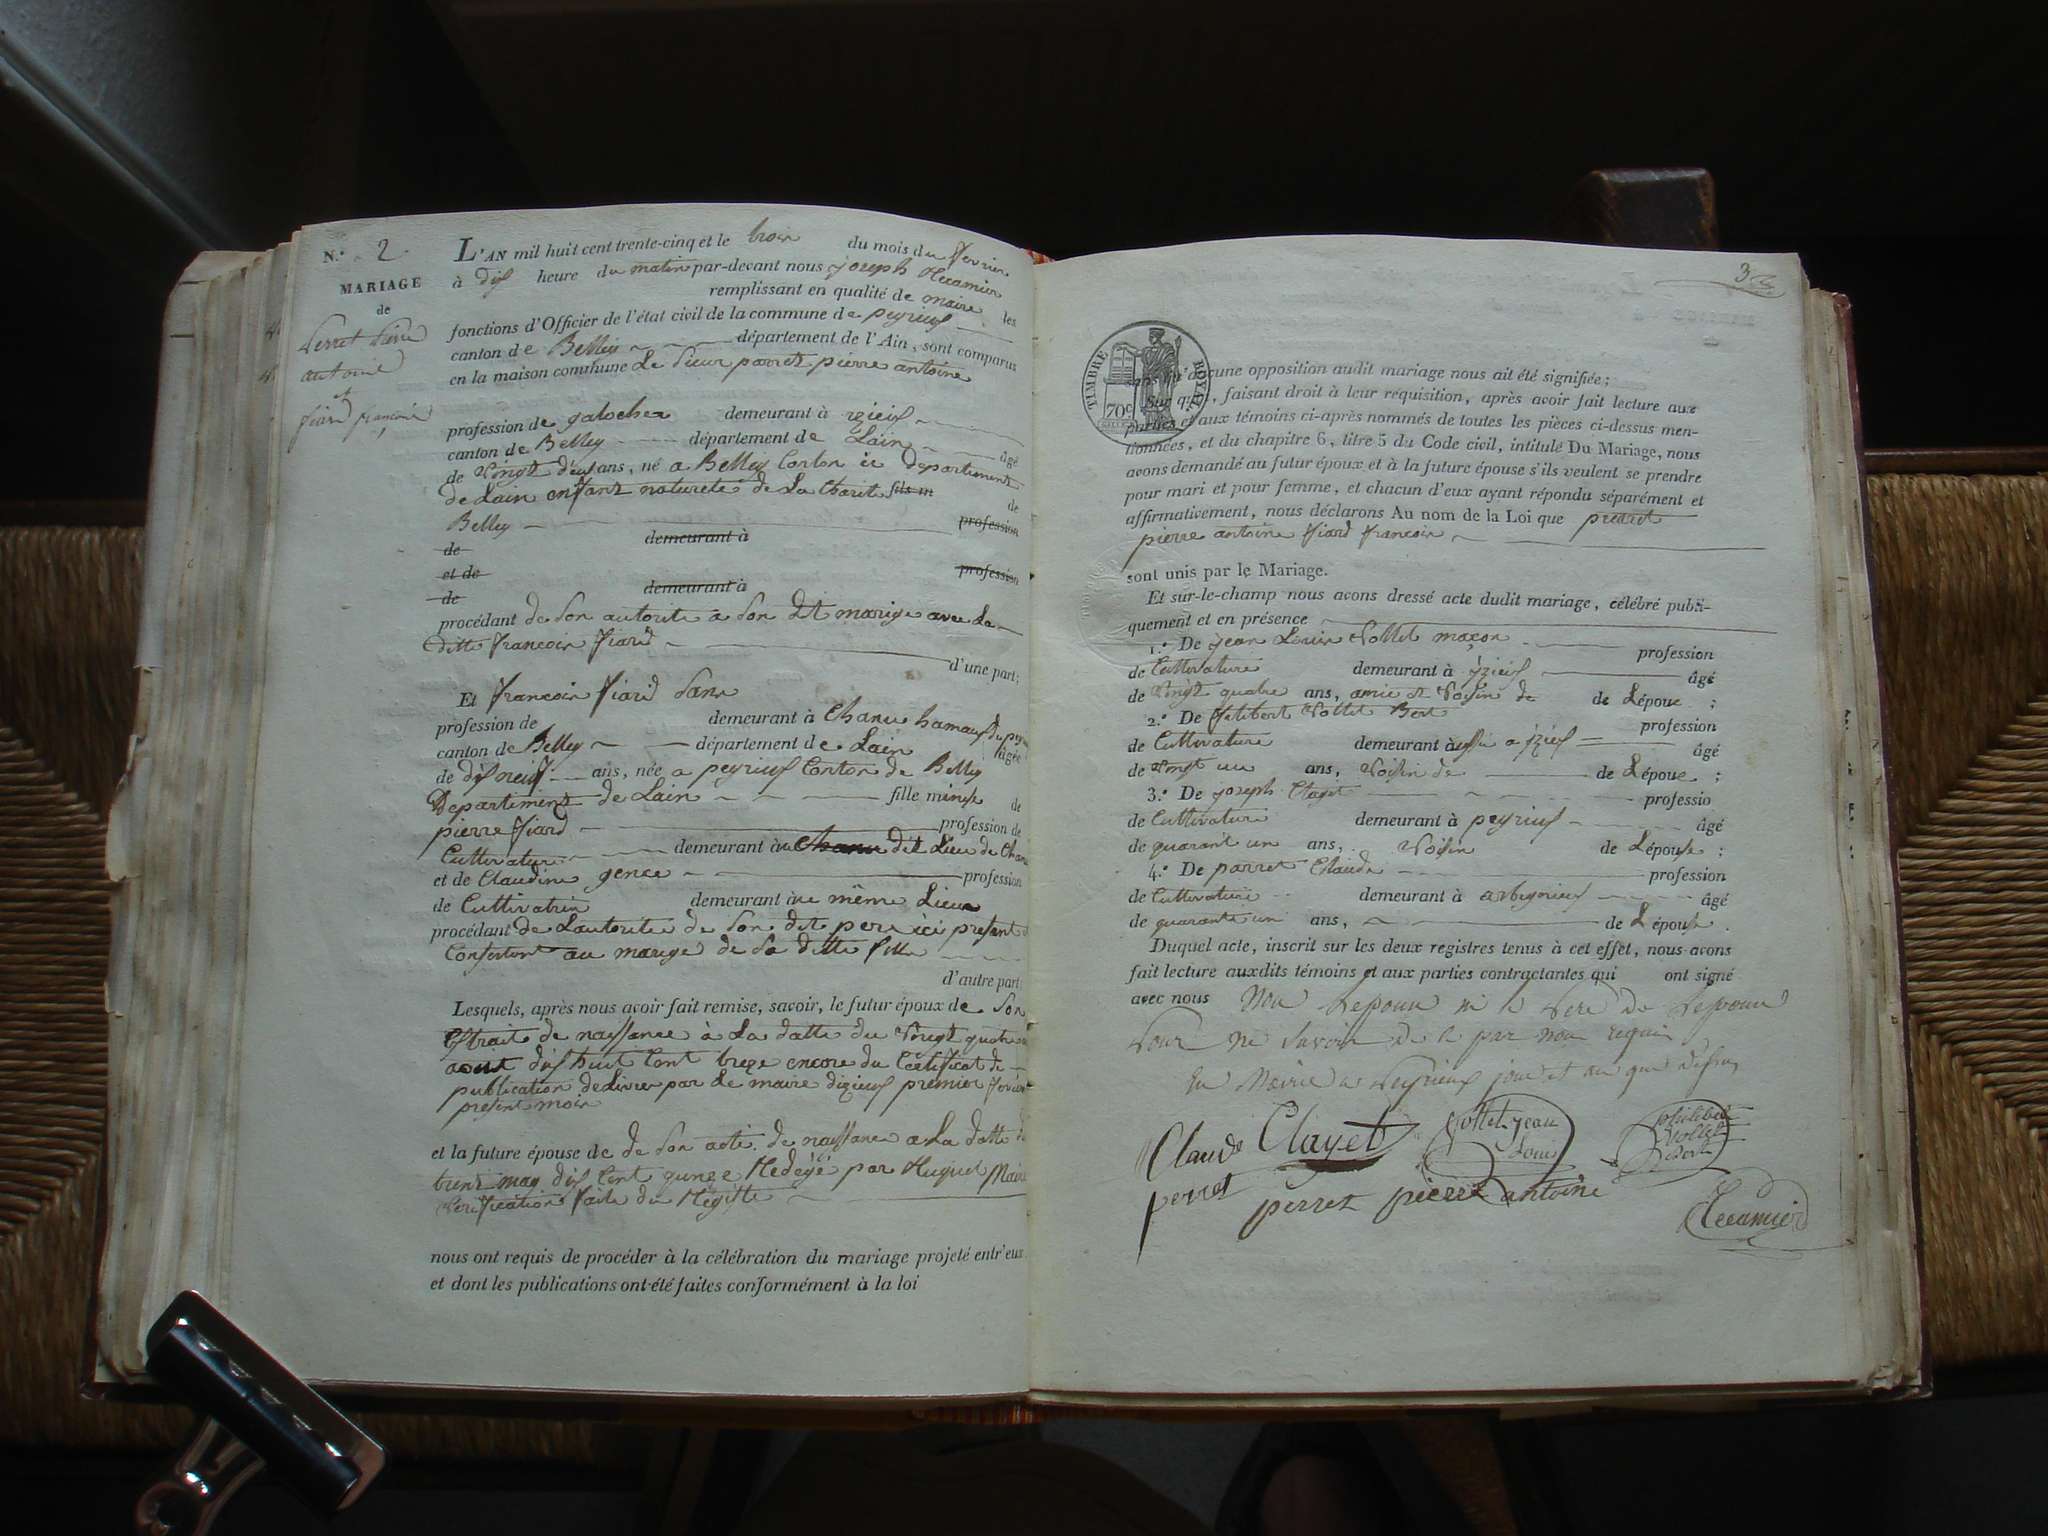 N.° 2.
MARIAGE
de
Perret Pierre
antoine
et
fiard françoise
L'AN mil huit cent trente-cinq et le trois du mois du fevrier
à dix heure du matin par-devant nous joseph Récamier
remplissant en qualité de maire les
fonctions d'Officier de l'état civil de la commune de peyrieux
canton de Belley département de l'Ain, sont comparus
en la maison commune Le Sieur parret pierre antoine
profession de galocher demeurant à izieux
canton de Belley département de Lain âgé
de Vingt deux ans, né a Belley Conton ii Departement
de Lain enfant naturele de La Charité fils m de
Belley profession
de demeurant à
et de profession
de demeurant à
procédant de Son autorite a Son dit marige avec La
ditte francoise fiard
d'une part;
Et francoise fiard Sans
profession de demeurant à Chanu hamaux du
canton de Belley département de Lain âgée
de dix neuf ans, née a peyrieux Conton de Belley
Departement de Lain fille mineure de
pierre fiard profession de
Cultivature demeurant àu Chanu dit Lieu de Chanu
et de Claudine gence profession
de Cultivatrice demeurant àu même Lieux
procédant de Lautorite de Son dit pere ici present
Consentant au marige de Sa ditte fille
d'autre part;
Lesquels, après nous avoir fait remise, savoir, le futur époux de Son
Extrait de naissance à La datte du Vingt quatre
aout dix huit Cent treze encore du Certificat de
publication delivre par Le maire dizieux premier fevrier
present mois
et la future épouse de de Son acte de naissance a La datte du
trente may dix Cent quinze Redigé par Huguet Maire
Verification faite du Régitre
nous ont requis de procéder à la célébration du mariage projeté entr'eux
et dont les publications ont été faites conformément à la loi
3
TIMBRE ROYAL
70c
sans qu'aucune opposition audit mariage nous ait été signifiée;
Sur quoi, faisant droit à leur réquisition, après avoir fait lecture aux
parties et aux témoins ci-après nommés de toutes les pièces ci-dessus men-
tionnées, et du chapitre 6, titre 5 du Code civil, intitulé Du Mariage, nous
avons demandé au futur époux et à la future épouse s'ils veulent se prendre
pour mari et pour femme, et chacun d'eux ayant répondu séparément et
affirmativement, nous déclarons Au nom de la Loi que
pierre antoine fiard francoise
sont unis par le Mariage.
Et sur-le-champ nous avons dressé acte dudit mariage, célébré publi-
quement et en présence
1.° De jean Louis Vottet maçon profession
de Cultivature demeurant à izieux âgé
de Vingt quatre ans, amie et Voisin de de Lépoue ;
2.° De filibert Vottet Bert profession
de Cultivature demeurant àussi a izieux âgé
de Vingt un ans, Voisin de de Lépoue ;
3.° De joseph Clayet professio
de Cultivature demeurant à peyrieux âgé
de quarant un ans, Voisin de Lépouse ;
4.° De parret Claude profession
de Cultivature demeurant à arbignieux âgé
de quarante un ans, de Lépouse .
Duquel acte, inscrit sur les deux registres tenus à cet effet, nous avons
fait lecture auxdits témoins et aux parties contractantes qui ont signé
avec nous Non Lepouse ni le Pere de Lepouse
Pour ne Savoir de ce par nous requis
En Mairie a Peyrieux jour et an que dessus
Claude Clayet Vottet jean Louis philibert Vottet Bert
perret perret pierre antoine Récamier